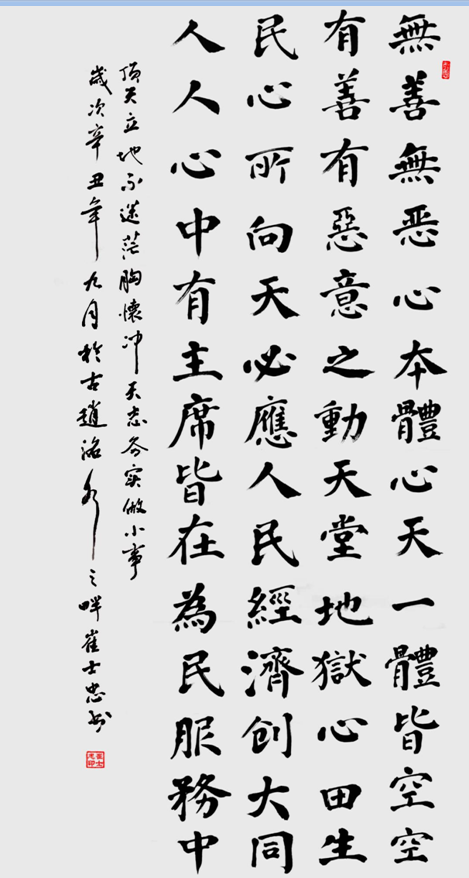 無善無恶心本體心天一體皆空空
有善有惡意之動天堂地獄心田生
民心所向天必應人民經濟创大同
人人心中有主席皆在為民服務中
頂天立地不迷茫胸懷冲天志务实做小事
歲次辛丑年九月於古趙洺水之畔崔士忠书